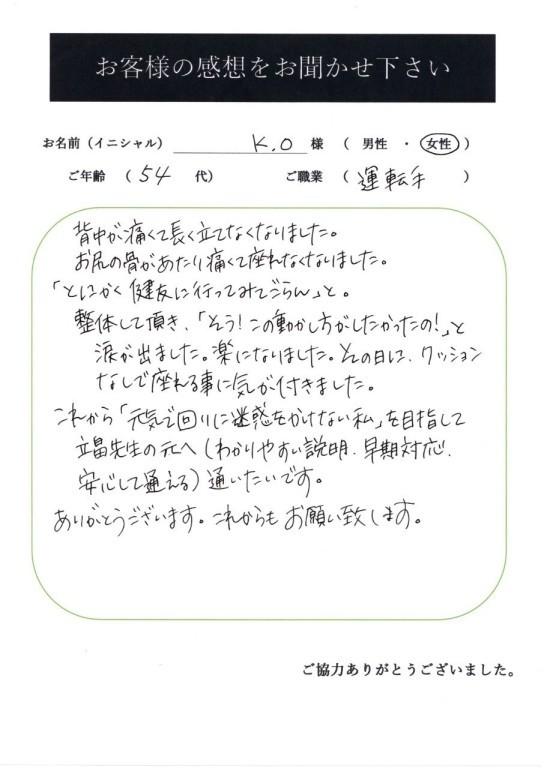 お客様の感想をお聞かせ下さい
お名前（イニシャル） K.O 様 （ 男性 ・ 女性 ）
ご年齢 （ 54 代） ご職業 （ 運転手 ）
背中が痛くて長く立てなくなりました。
お尻の骨があたり痛くて座れなくなりました。
「とにかく健友に行ってみてごらん」と。
整体して頂き、「そう！この動かし方がしたかったの！」と
涙が出ました。楽になりました。その日に、クッション
なしで座れる事に気が付きました。
これから「元気で回りに迷惑をかけない私」を目指して
立畠先生の元へ（わかりやすい説明、早期対応、
安心して通える）通いたいです。
ありがとうございます。これからもお願い致します。
ご協力ありがとうございました。